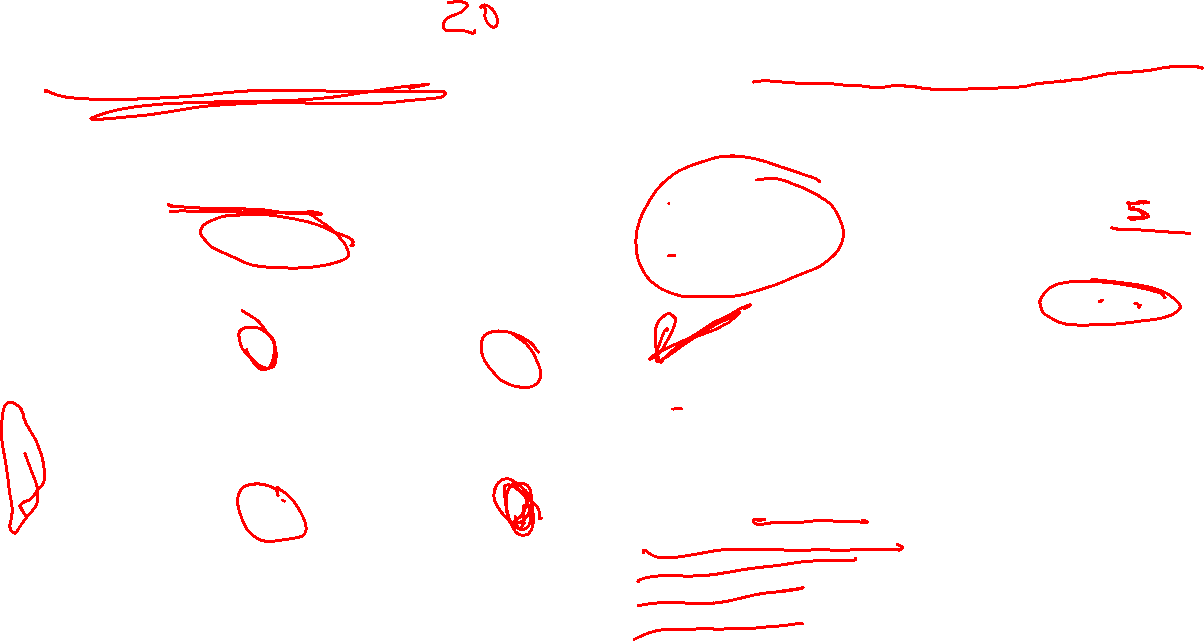 20
5